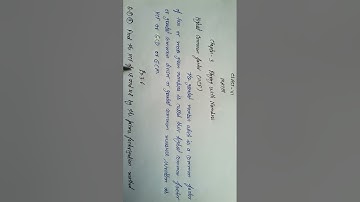 CLASS-VI
MATH
Chapter 3 Playing with Numbers
Highest Common factor (HCF)
The greatest number which is a common factor
of two or more given numbers is called their highest common factor
or greatest common divisor or greatest common measure, written as
HCF or GCD or GCM.
Find the HCF of and by the prime factorization method